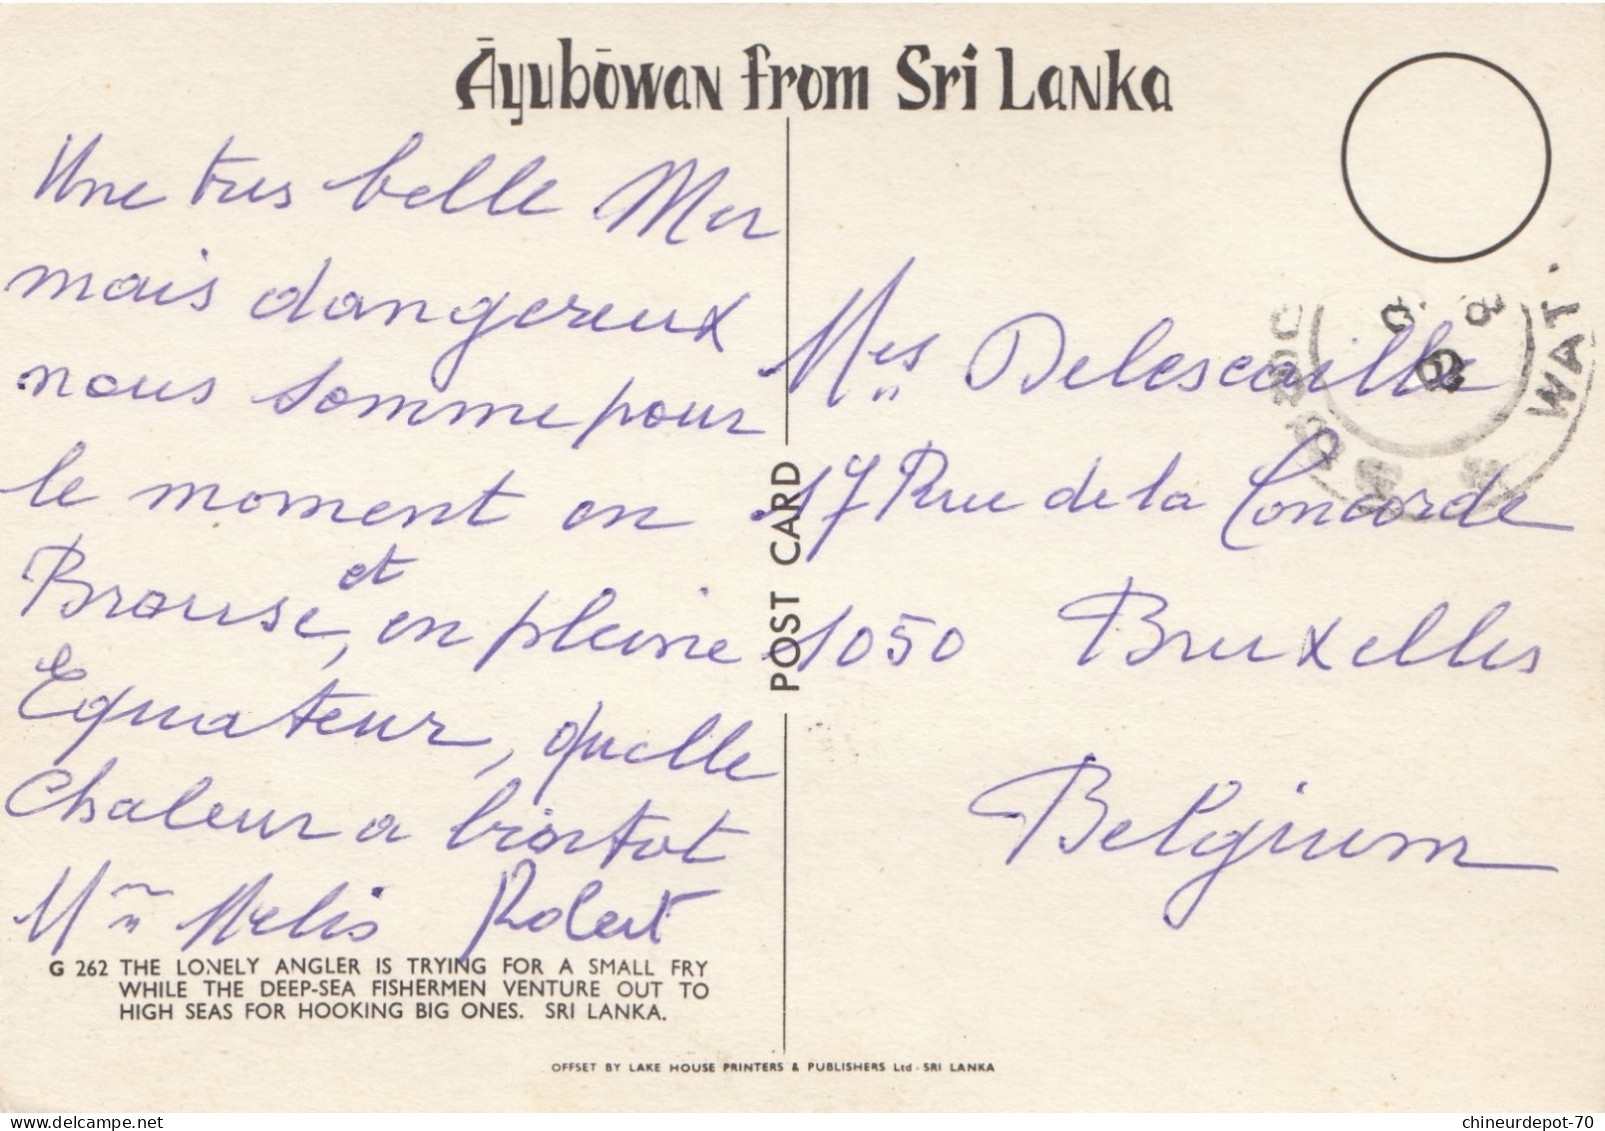 Āyubōwan from Sri Lanka
Une tres belle Mer
mais dangereux
nous somme pour
le moment en
Brousse, et en pleine
Equateur, quelle
Chaleur a bientot
Mme Melis Robert
G 262 THE LONELY ANGLER IS TRYING FOR A SMALL FRY
WHILE THE DEEP-SEA FISHERMEN VENTURE OUT TO
HIGH SEAS FOR HOOKING BIG ONES. SRI LANKA.
POST CARD
Delescaille
17 Rue de la Concorde
1050 Bruxelles
Belgium
WAT.
OFFSET BY LAKE HOUSE PRINTERS & PUBLISHERS Ltd - SRI LANKA
chineurdepot-70